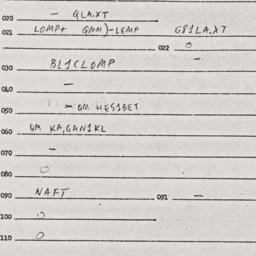 020 — QLA.XT
021 LOMP+ QMM)-LEMP G81LA.XT
022 O
—
030 BL1CLOMP
040 —
050 — OM HES1BET
060 OM KA,GAN1KL
070 —
080 O
090 NAFT 091 —
100 O
110 O